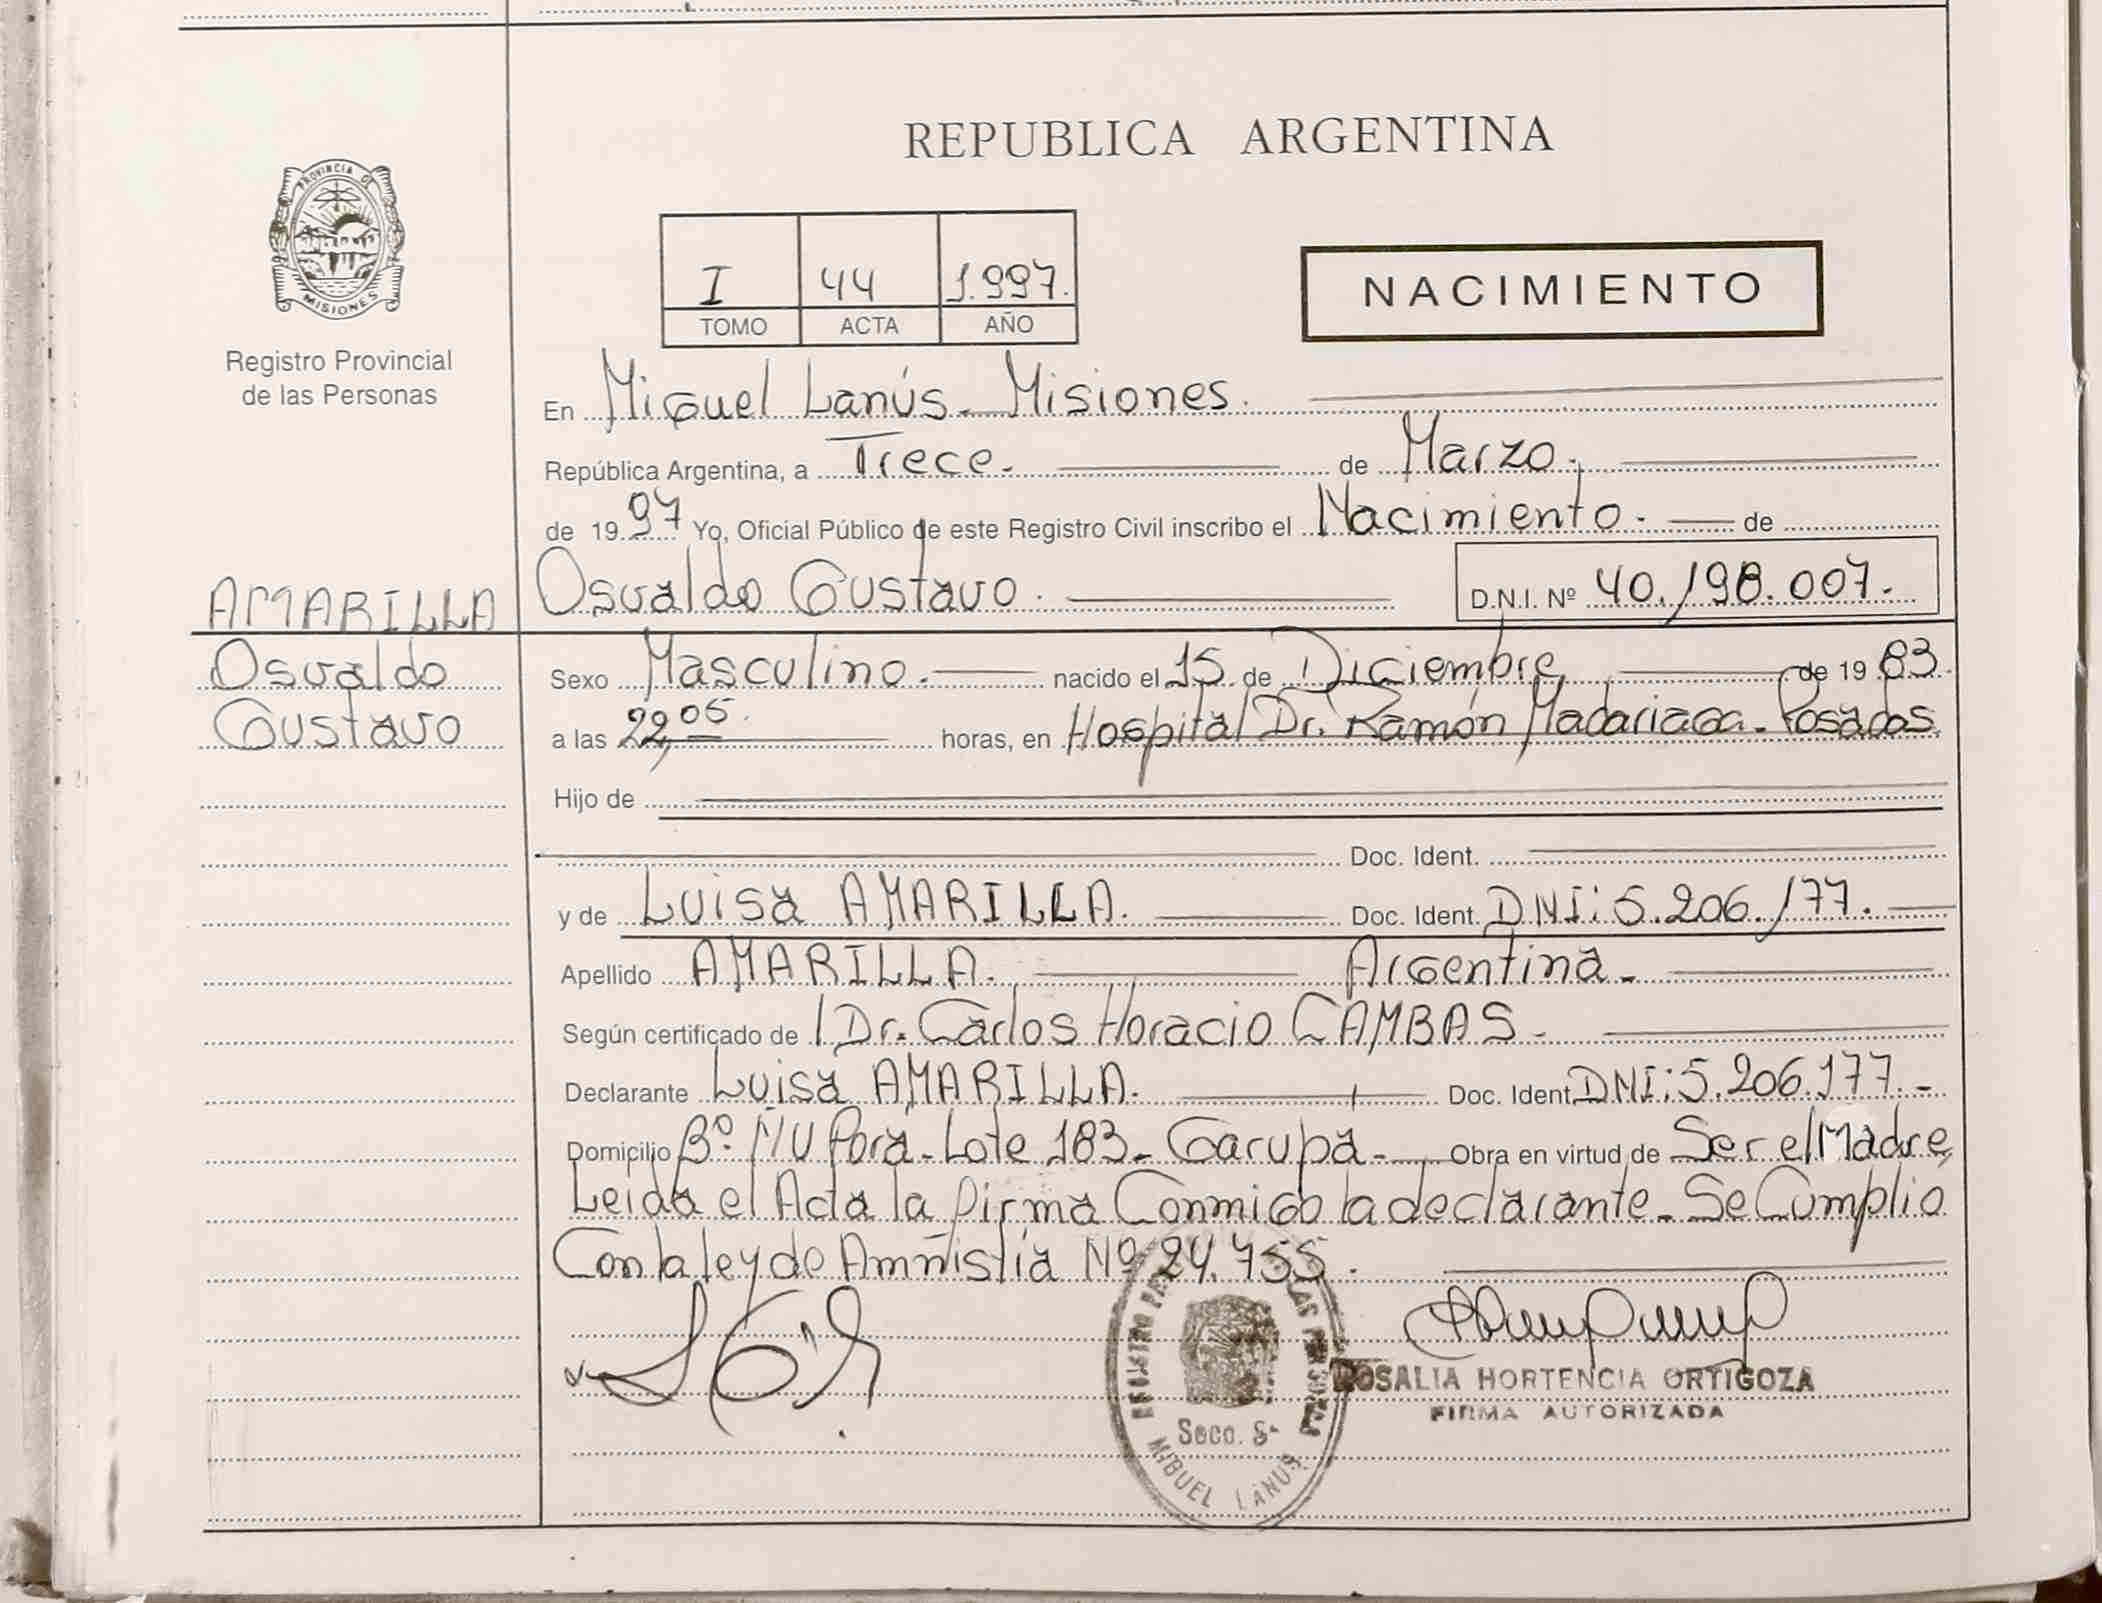 REPUBLICA ARGENTINA
PROVINCIA DE
MISIONES
Registro Provincial
de las Personas
I 44 1.997.
TOMO ACTA AÑO
NACIMIENTO
En Miguel Lanús. Misiones.
República Argentina, a Trece. de Marzo.
de 1997 Yo, Oficial Público de este Registro Civil inscribo el Nacimiento. de
AMARILLA
Osvaldo
Gustavo
Osvaldo Gustavo. D.N.I. Nº 40.198.007.
Sexo Masculino. nacido el 15 de Diciembre de 1983.
a las 22,05. horas, en Hospital Dr. Ramón Madariaga. Posadas.
Hijo de
Doc. Ident.
y de Luisa AMARILLA. Doc. Ident. DNI: 5.206.177.
Apellido AMARILLA. Argentina.
Según certificado de Dr. Carlos Horacio CAMBAS.
Declarante Luisa AMARILLA. Doc. Ident. DNI: 5.206.177.
Domicilio Bº. ÑU Porá. Lote 183. Garupá. Obra en virtud de Ser el Madre,
Leida el Acta la firma Conmigo la declarante. Se Cumplio
Con la ley de Amñistía Nº 24.755.
REGISTRO LAS PERSONAS
Secc. 8ª
MIGUEL LANUS
ROSALIA HORTENCIA ORTIGOZA
FIRMA AUTORIZADA